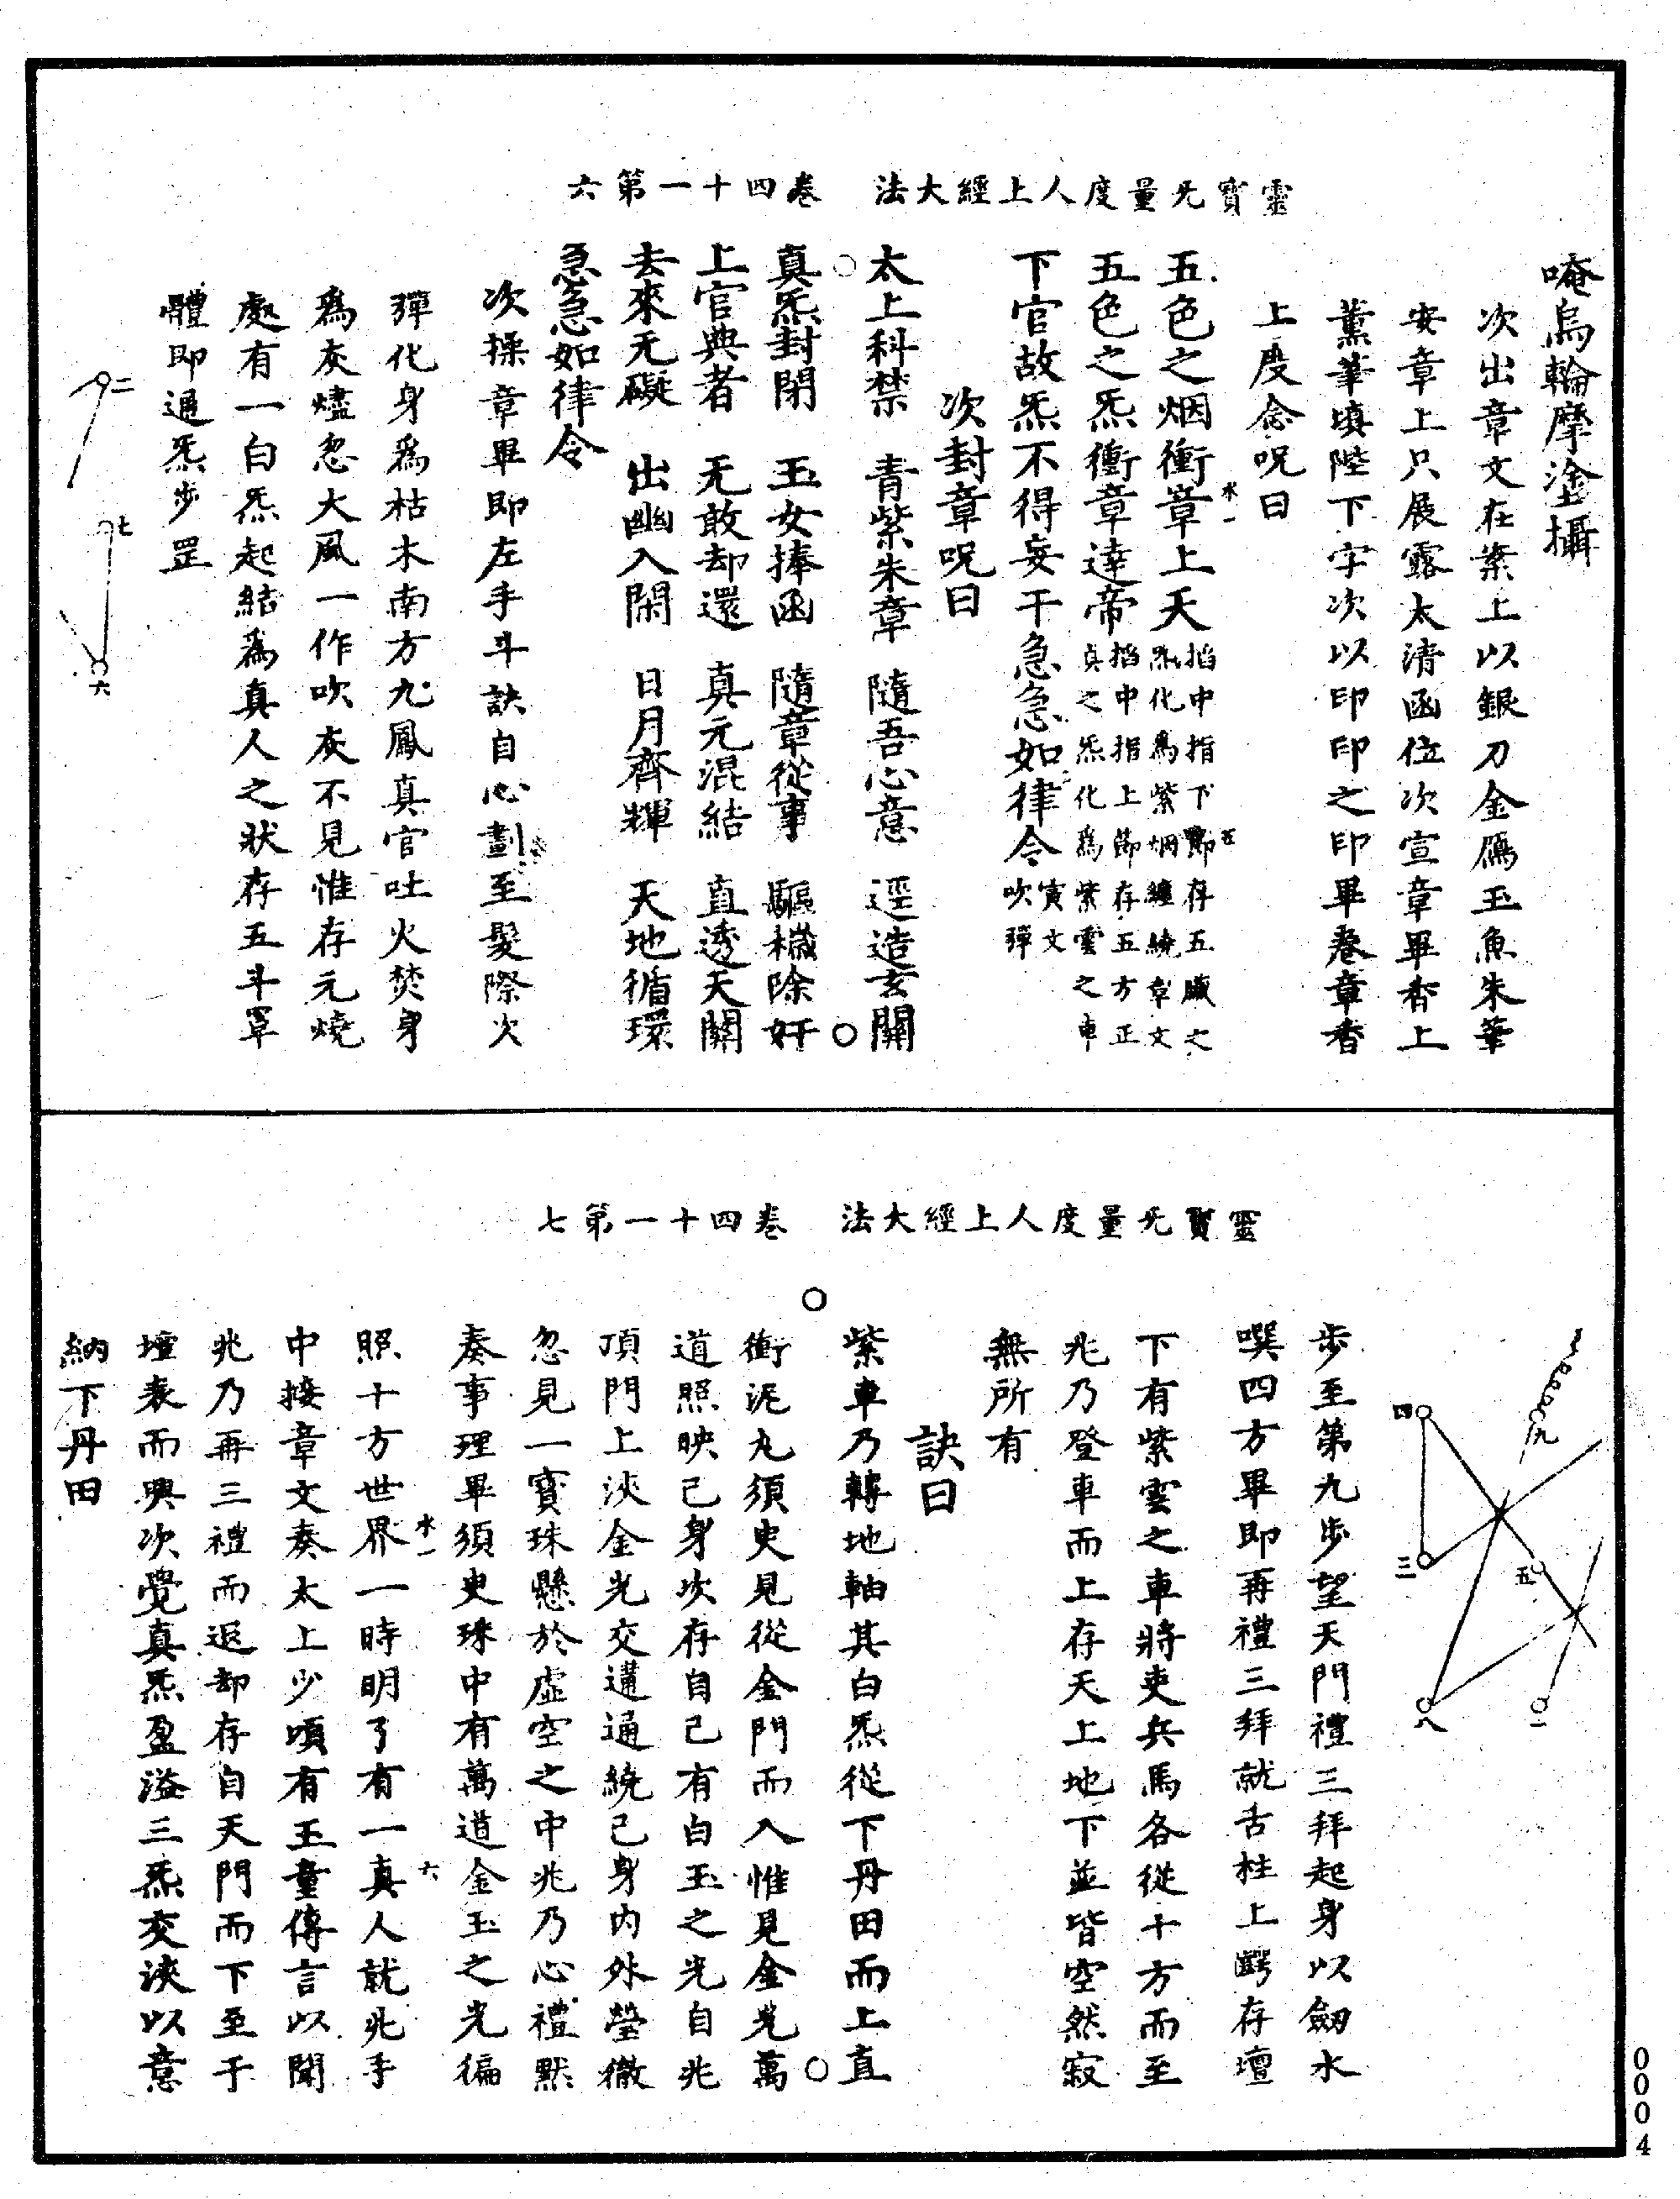 靈寶旡量度人上經大法　卷四十一第六
唵烏輪摩塗攝
次出章文在案上以銀刀金鴈玉魚朱筆
安章上只展露太清函位次宣章畢香上
薰筆填陛下字次以印印之印畢卷章香
上度念呪曰
五色之烟衝章上天掐中指下節存五臟之炁化爲紫烟纏繞章文
五色之炁衝章達帝掐中指上節存五方正真之炁化爲紫雲之車
下官故炁不得妄干急急如律令寅文吹彈
次封章呪曰
太上科禁　青紫朱章　隨吾心意　逕造玄關
真炁封閉　玉女捧函　隨章從事　驅穢除奸
上官典者　无敢却還　真元混結　直透天關
去來无礙　出幽入閑　日月齊輝　天地循環
急急如律令
次操章畢即左手斗訣自心劃至髮際次
彈化身爲枯木南方九鳳真官吐火焚身
爲灰燼忽大風一作吹灰不見惟存元燒
處有一白炁起結爲真人之狀存五斗罩
體即過炁步罡
水一
五
二
七
六
靈寶旡量度人上經大法　卷四十一第七
九
四
三
五
八
一
步至第九步望天門禮三拜起身以劔水
噀四方畢即再禮三拜就舌柱上齶存壇
下有紫雲之車將吏兵馬各從十方而至
兆乃登車而上存天上地下並皆空然寂
無所有
訣曰
紫車乃轉地軸其白炁從下丹田而上直
衝泥丸須臾見從金門而入惟見金光萬
道照映己身次存自己有白玉之光自兆
頂門上浹金光交遘通繞己身內外瑩徹
忽見一寶珠懸於虛空之中兆乃心禮默
奏事理畢須臾珠中有萬道金玉之光徧
照十方世界一時明了有一真人就兆手
中接章文奏太上少頃有玉童傳言以聞
兆乃再三禮而退却存自天門而下至于
壇表而興次覺真炁盈溢三炁交浹以意
納下丹田
水一
六
0004